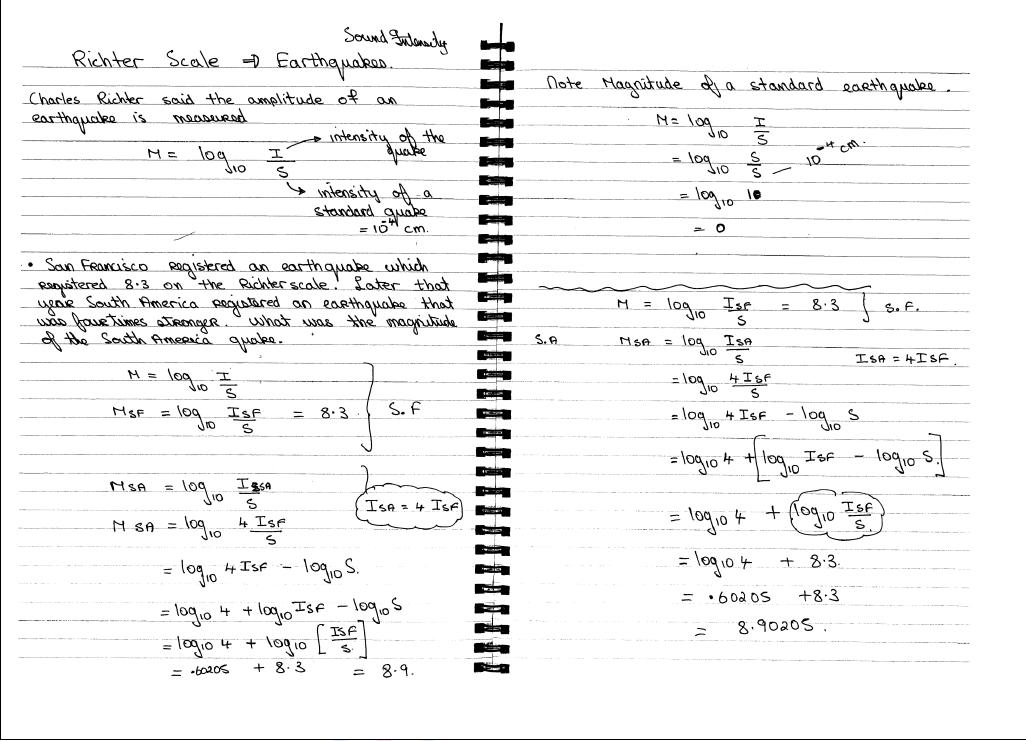 Sound Intensity
Richter Scale ⇒ Earthquakes.
Charles Richter said the amplitude of an
earthquake is measured
M = log10 I/S → intensity of the quake
↳ intensity of a
standard quake
= 10^-4 cm.
• San Francisco registered an earthquake which
registered 8.3 on the Richter scale. Later that
year South America registered an earthquake that
was four times stronger. What was the magnitude
of the South America quake.
M = log10 I/S
MSF = log10 ISF/S = 8.3 } S.F
MSA = log10 ISA/S
ISA = 4 ISF
MSA = log10 4 ISF/S
= log10 4 ISF - log10 S.
= log10 4 + log10 ISF - log10 S
= log10 4 + log10 [ISF/S.]
= .60205 + 8.3 = 8.9.
Note Magnitude of a standard earthquake.
M = log10 I/S
= log10 S/S — 10^-4 cm.
= log10 1
= 0
M = log10 ISF/S = 8.3 } S.F.
S.A MSA = log10 ISA/S
ISA = 4 ISF.
= log10 4 ISF/S
= log10 4 ISF - log10 S
= log10 4 + [log10 ISF - log10 S.]
= log10 4 + (log10 ISF/S.)
= log10 4 + 8.3.
= .60205 + 8.3
= 8.90205.